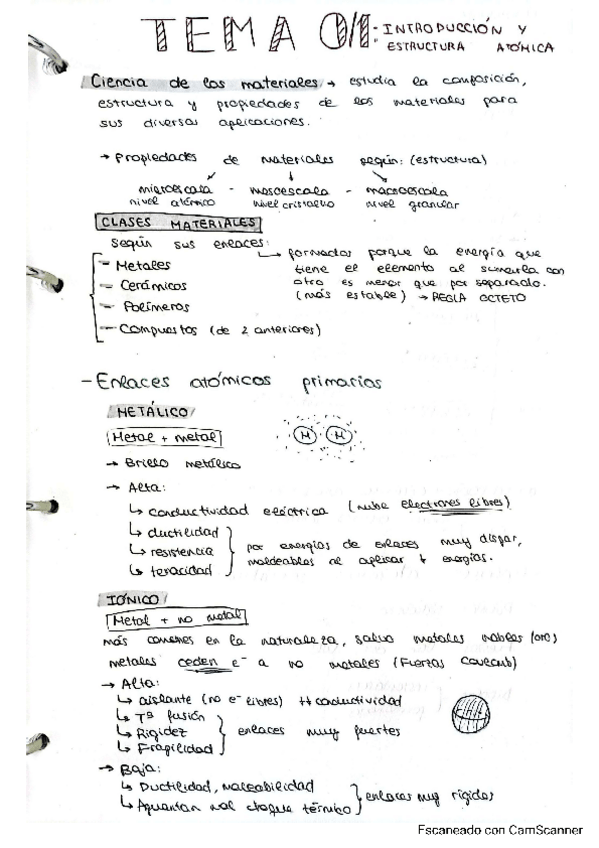 TEMA 01: INTRODUCCIÓN Y
ESTRUCTURA ATÓMICA
Ciencia de los materiales → estudia la composición,
estructura y propiedades de los materiales para
sus diversas aplicaciones.
→ Propiedades de materiales según: (estructura)
microescala - mesoescala - macroescala
nivel atómico nivel cristalino nivel granular
CLASES MATERIALES
según sus enlaces:
↳ formados porque la energía que
tiene el elemento al sumarla con
otro es menor que por separado.
(más estable) → REGLA OCTETO
- Metales
- Cerámicos
- Polímeros
- Compuestos (de 2 anteriores)
- Enlaces atómicos primarios
METÁLICO
Metal + metal
M M
→ Brillo metálico
→ Alta:
↳ conductividad eléctrica (nube electrones libres)
↳ ductilidad
↳ resistencia
↳ tenacidad
por energías de enlaces muy dispar,
moldeables al aplicar + energías.
IÓNICO
Metal + no metal
más comunes en la naturaleza, salvo metales nobles (oro)
metales ceden e⁻ a no metales (Fuerzas Coulomb)
→ Alta:
↳ aislante (no e⁻ libres) conductividad
↳ Tª fusión
↳ Rigidez
↳ Fragilidad
enlaces muy fuertes
→ Baja:
↳ Ductilidad, maleabilidad
↳ Aguantan mal choque térmico
enlaces muy rígidos
Escaneado con CamScanner